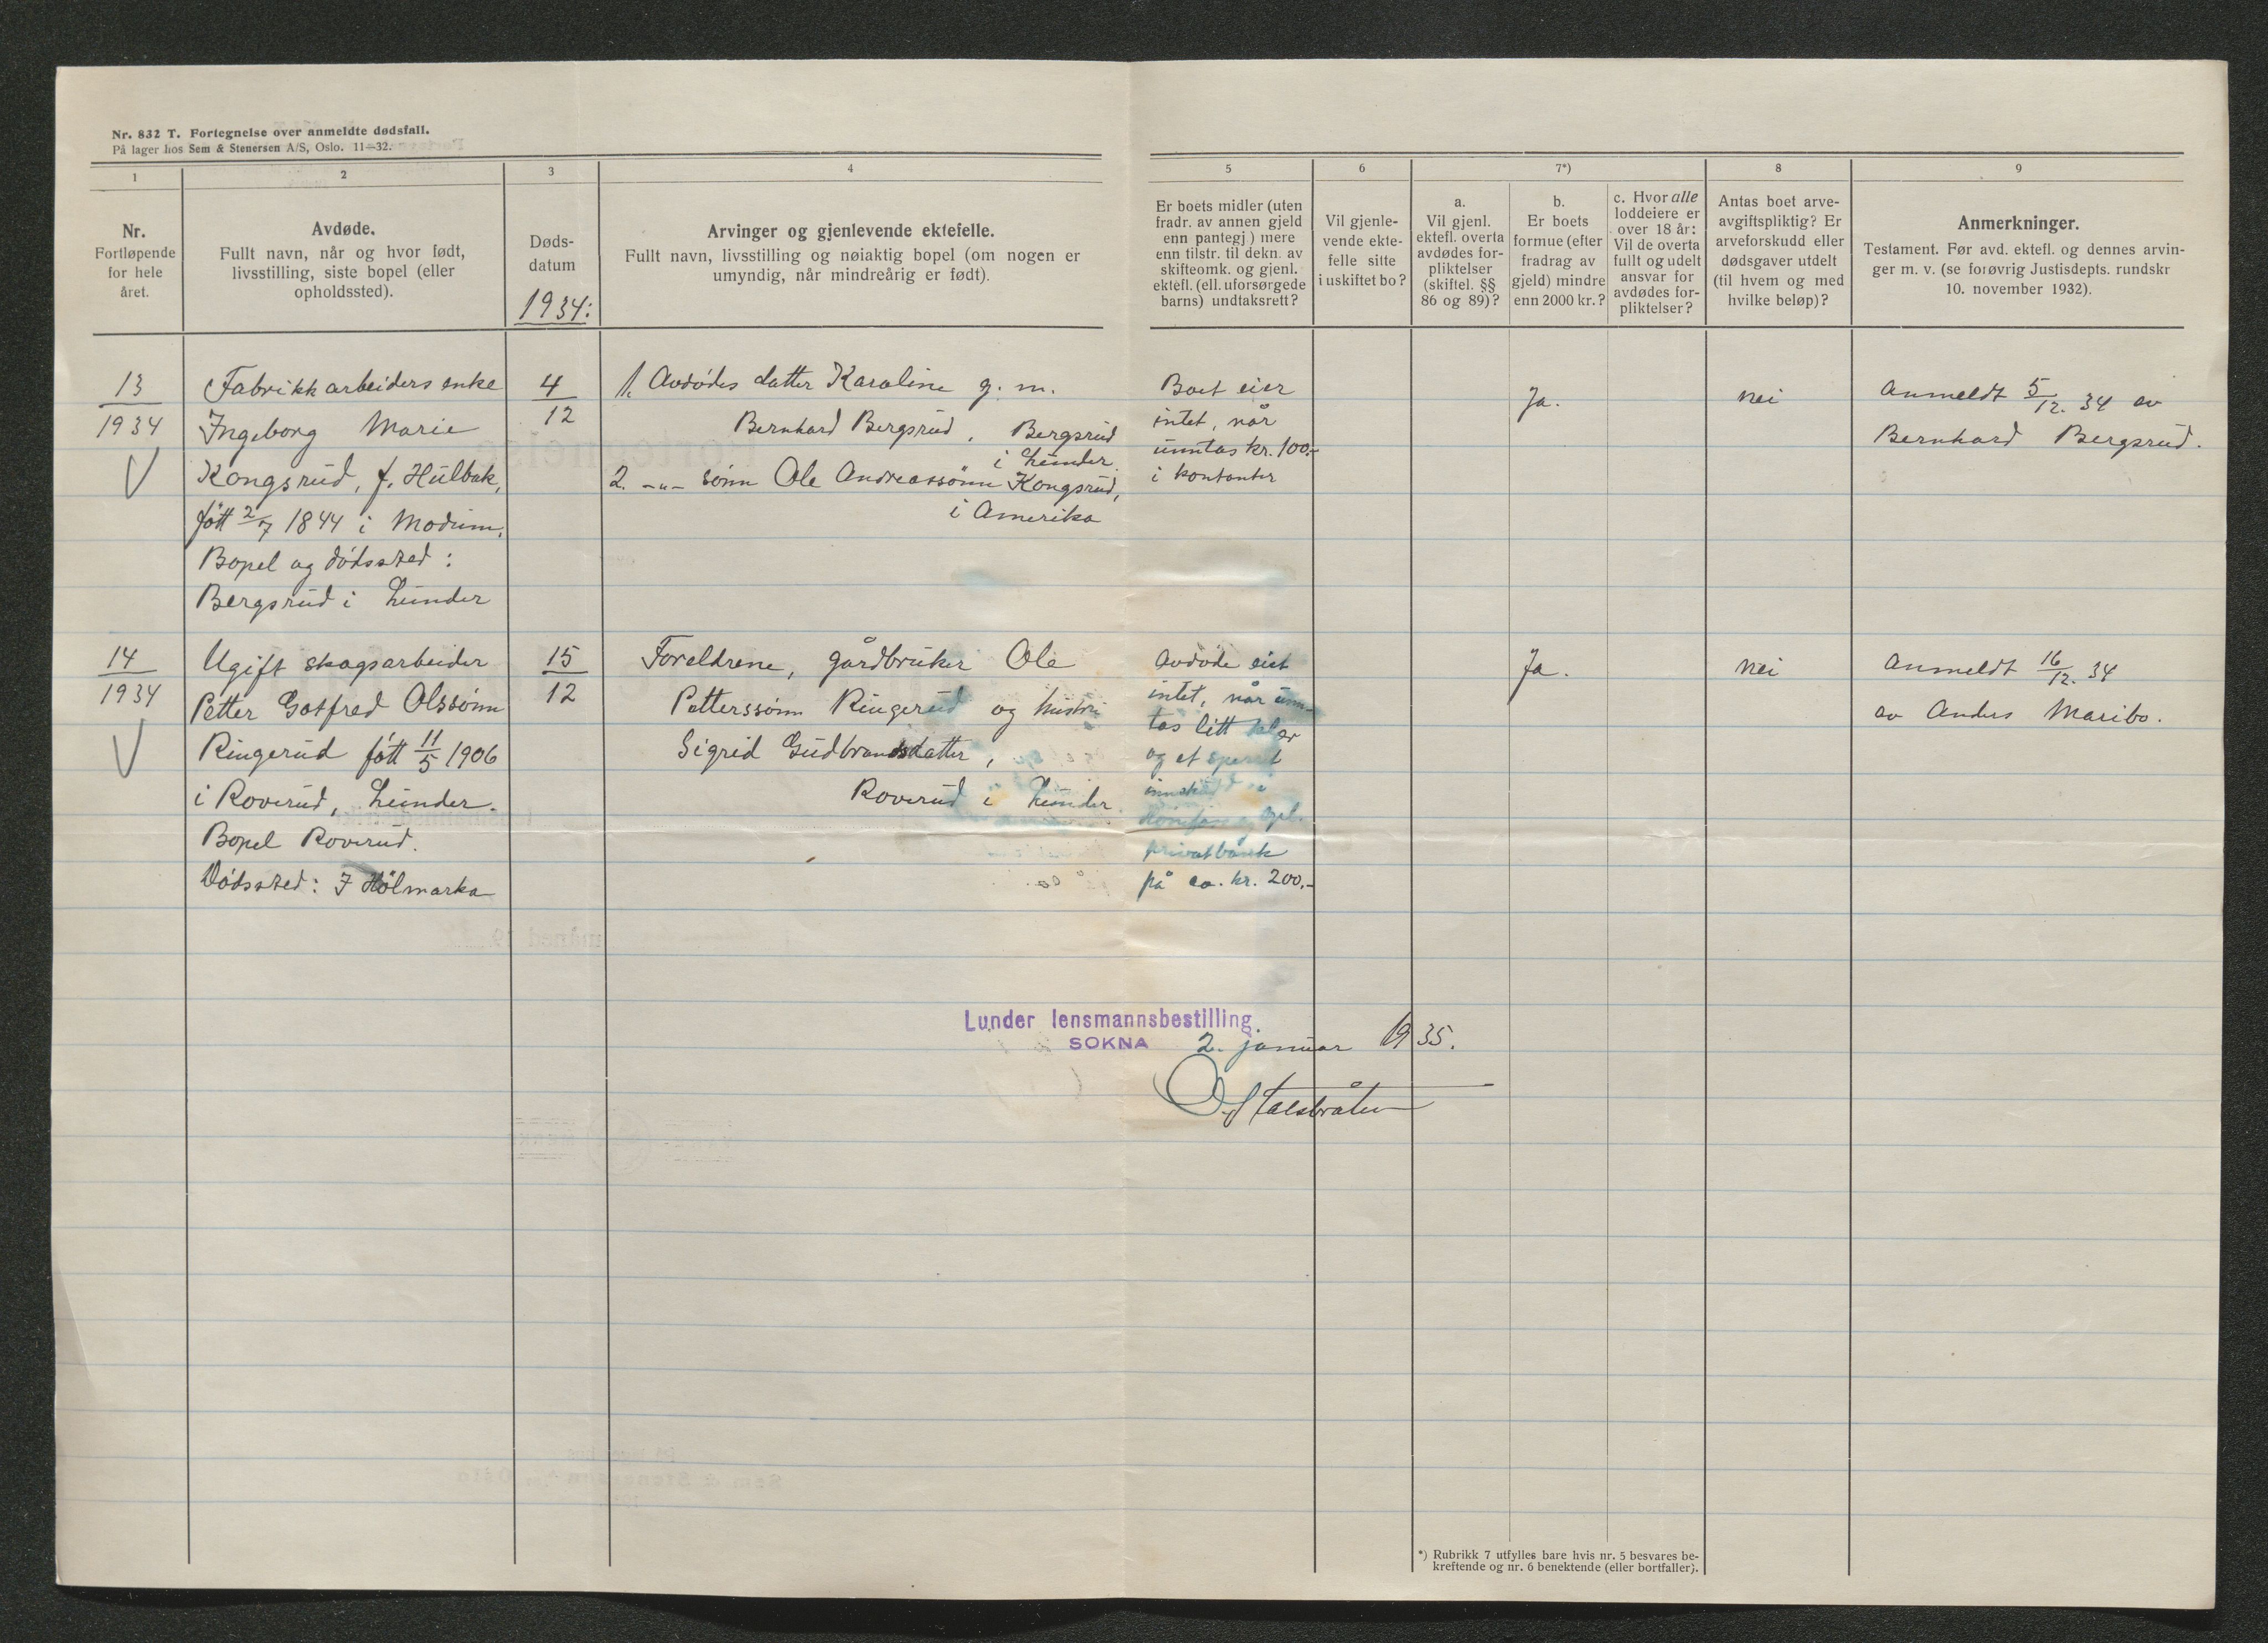 Nr. 832 T. Fortegnelse over anmeldte dødsfall.
På lager hos Sem & Stenersen A/S, Oslo. 11—32.
1
2
3
4
5
6
7*)
8
9
Nr.
Fortløpende
for hele
året.
Avdøde.
Fullt navn, når og hvor født,
livsstilling, siste bopel (eller
opholdssted).
Døds-
datum
1934:
Arvinger og gjenlevende ektefelle.
Fullt navn, livsstilling og nøiaktig bopel (om nogen er
umyndig, når mindreårig er født).
Er boets midler (uten
fradr. av annen gjeld
enn pantegj.) mere
enn tilstr. til dekn. av
skifteomk. og gjenl.
ektefl. (ell. uforsørgede
barns) undtaksrett?
Vil gjenle-
vende ekte-
felle sitte
i uskiftet bo?
a.
Vil gjenl.
ektefl. overta
avdødes for-
pliktelser
(skiftel. §§
86 og 89)?
b.
Er boets
formue (efter
fradrag av
gjeld) mindre
enn 2000 kr.?
c. Hvor alle
loddeiere er
over 18 år:
Vil de overta
fullt og udelt
ansvar for
avdødes for-
pliktelser?
Antas boet arve-
avgiftspliktig? Er
arveforskudd eller
dødsgaver utdelt
(til hvem og med
hvilke beløp)?
Anmerkninger.
Testament. Før avd. ektefl. og dennes arvin-
ger m. v. (se forøvrig Justisdepts. rundskr
10. november 1932).
13
1934
Fabrikkarbeiders enke
Ingeborg Marie
Kongsrud, f. Hulbak,
født 2/7 1844 i Modum.
Bopel og dødssted:
Bergsrud i Lunder
4
12
1. Avdødes datter Karoline g. m.
Bernhard Bergsrud, Bergsrud
i Lunder
2. -"- sønn Ole Andreassønn Kongsrud,
i Amerika
Boet eier
intet, når
unntas kr. 100.-
i kontanter
Ja.
nei
Anmeldt 5/12. 34 av
Bernhard Bergsrud.
14
1934
Ugift skogsarbeider
Petter Gotfred Olssønn
Ringerud født 11/5 1906
i Roverud, Lunder.
Bopel Roverud.
Dødssted: I Hølmarka
15
12
Foreldrene, gårdbruker Ole
Petterssønn Ringerud og hustru
Sigrid Gudbrandsdatter,
Roverud i Lunder
Avdøde eiet
intet, når unn-
tas litt klær
og et
innskudd i
privatbank
på ca. kr. 200.-
Ja.
nei
Anmeldt 16/12. 34
av Anders Maribo.
Lunder lensmannsbestilling.
SOKNA 2. januar 1935.
*) Rubrikk 7 utfylles bare hvis nr. 5 besvares be-
kreftende og nr. 6 benektende (eller bortfaller).